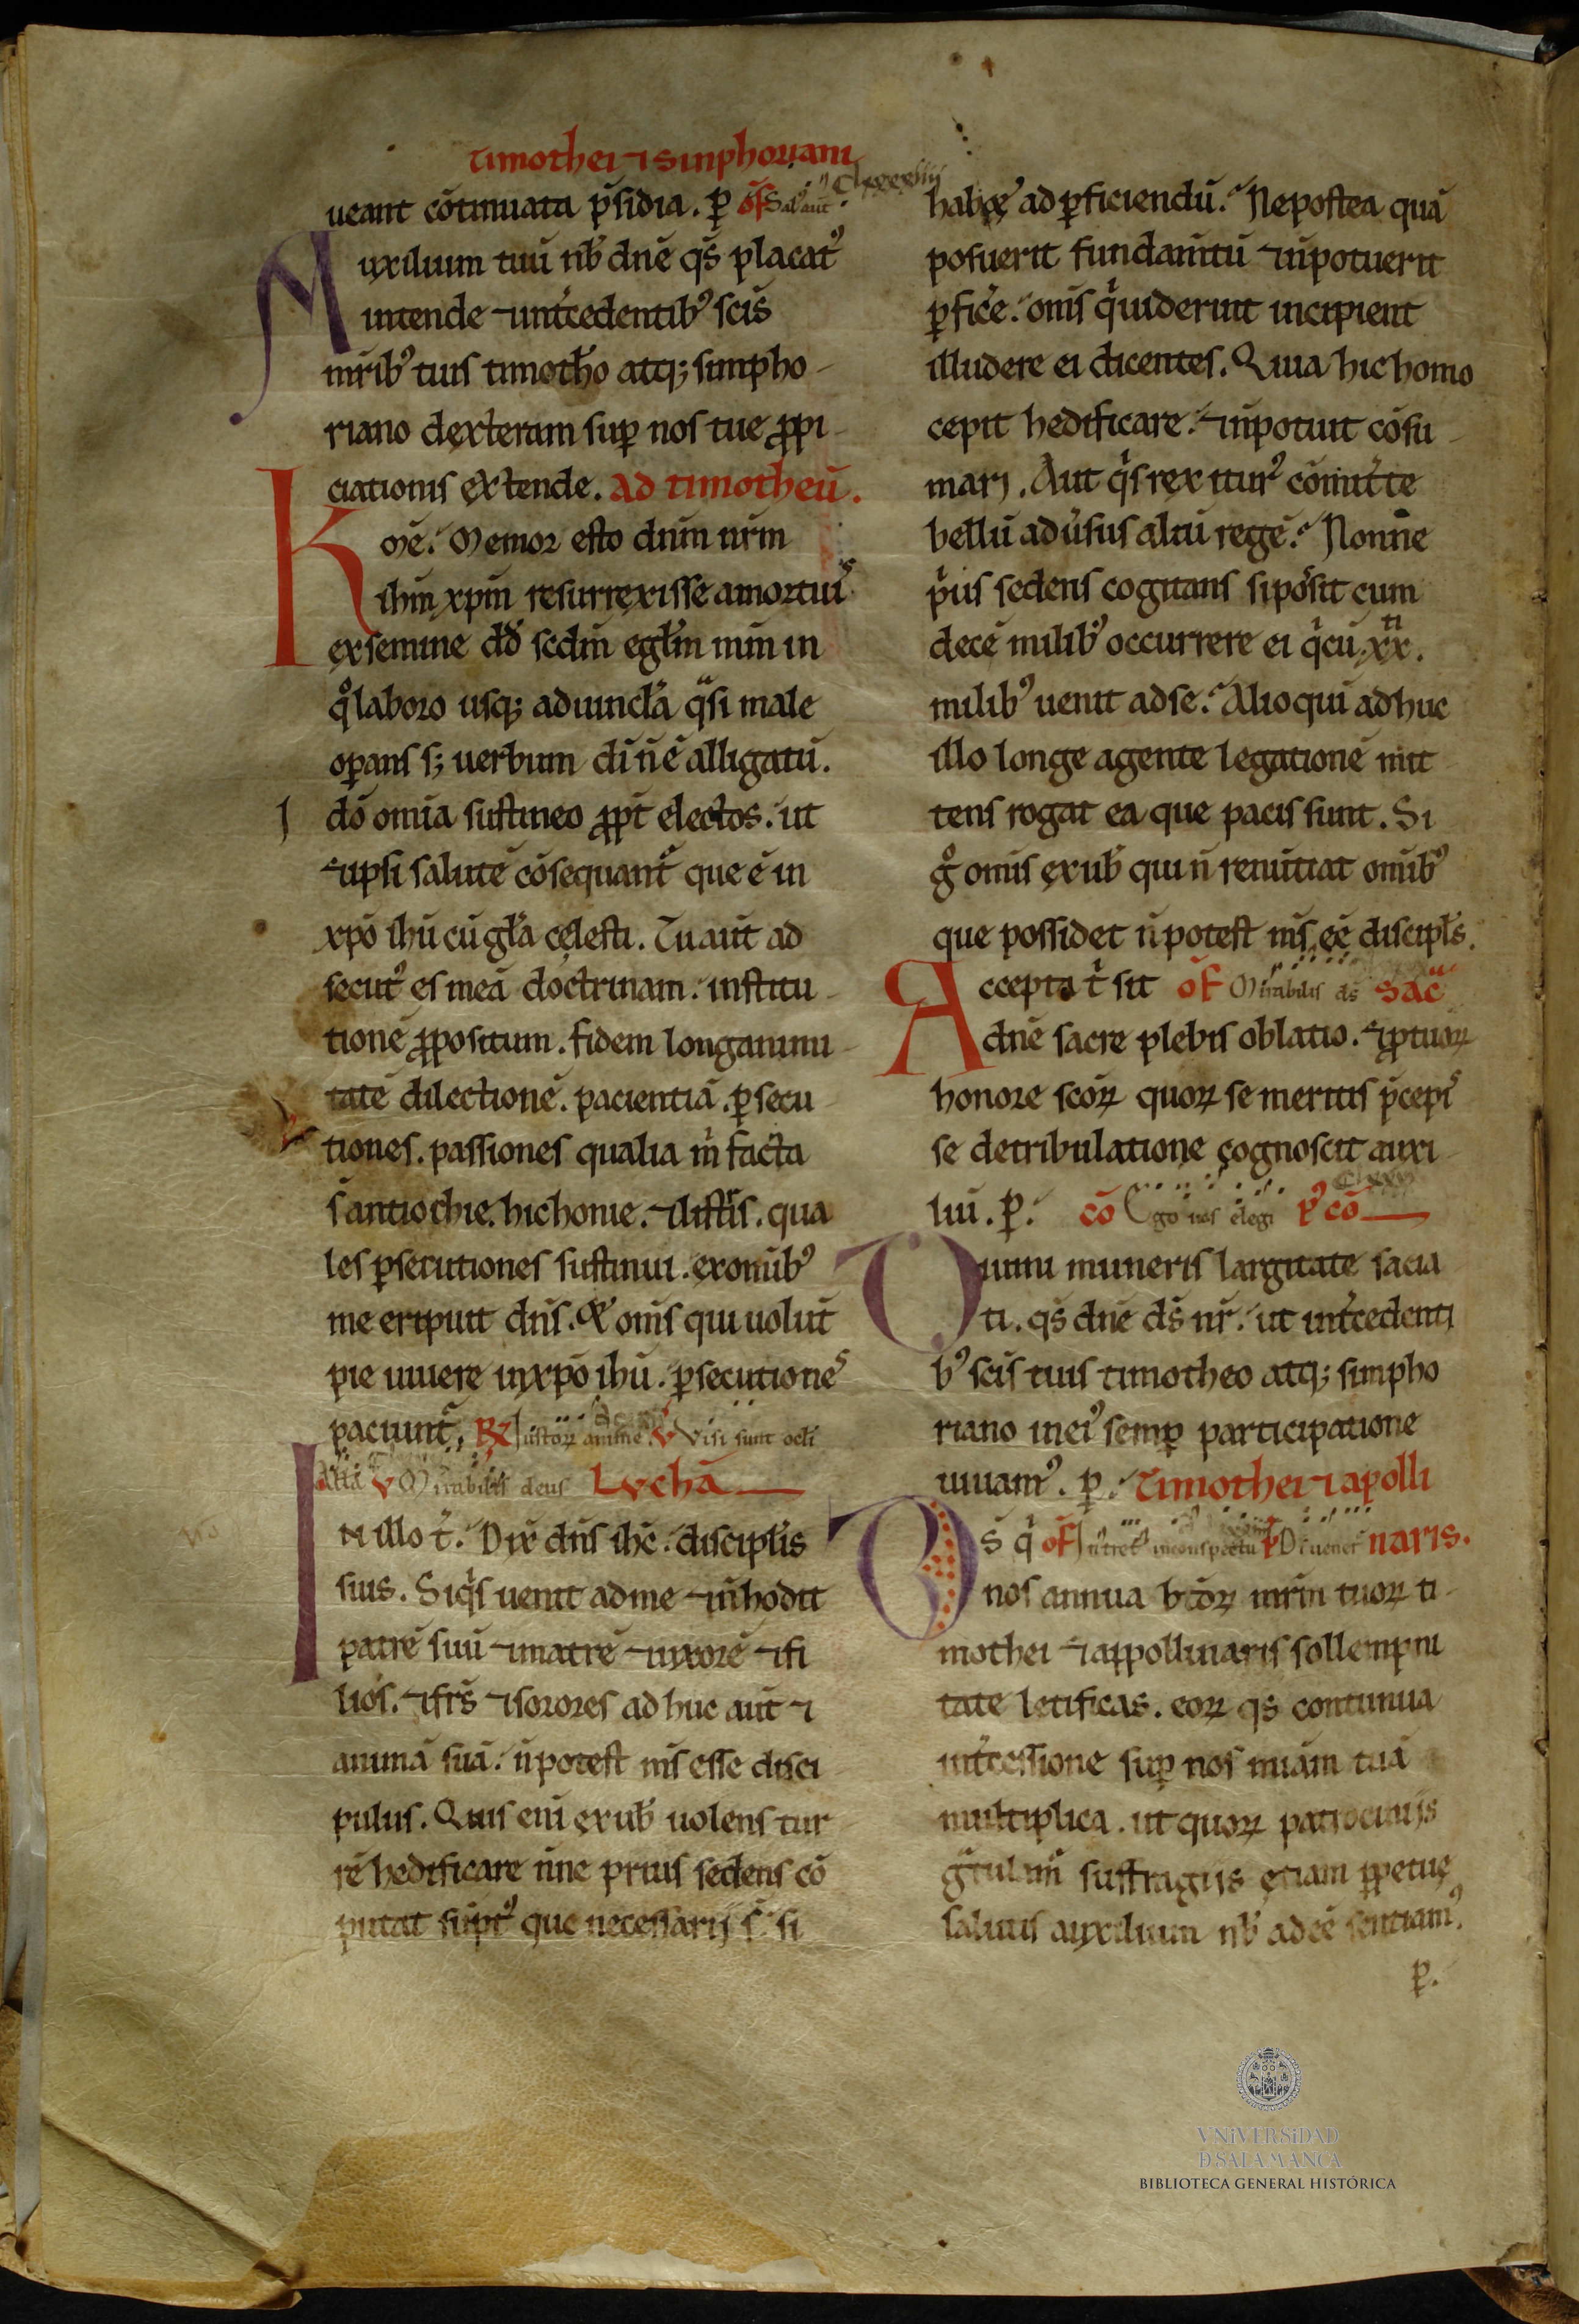 timothei ⁊ sinphoriani
ueant cōtinuata p̄sidia. ꝑ of̄ Sal aut̄
Auxilium tuū nb̄ dn̄e qs̄ placatꝰ
intende ⁊ int̄cedentibꝰ sc̄is
mr̄ibꝰ tuis timotħo atq; simpho-
riano dexteram suꝑ nos tue ꝓpi-
ciationis extende. Ad timotheū.
Kmē. Memor esto dn̄m nr̄m
ihm̄ xpm̄ resurrexisse amortuis
exsemine dd̄ scdm̄ egłm mm̄ in
qͦ laboro usq; aduincła qͣsi male
oꝑans s; uerbum dī n̄ ē alligatū.
I dō omīa sustineo ꝓpt̄ electos. ut
⁊ ipsi salutē cōsequant̄ que ē in
xp̄o ihū cū gła celesti. Tu aut̄ ad
secutꝰ es meā doctrinam. institu-
tionē ꝓpositum. fidem longanimi-
tatē dilectionē. pacientiā. ꝑsecu-
tiones. passiones qualia m̄ facta
s̄ antiochie. hichonie. ⁊ listris. qua
les ꝑsecutiones sustinui. exomībꝰ
me eripuit dn̄s. Et om̄s qui uolūt
pie uiuere inxp̄o ihū. ꝑsecutiones
paciunt̄. R Iustoꝝ anime. V Visi sunt ocłi
Alła V Mirabilis deus Lucħā
IN illo t̄. Dix̄ dn̄s ihc̄. discipłis
suis. Siqͥs uenit adme ⁊ n̄ hodit
patrē suū ⁊ matrē ⁊ uxorē ⁊ fi
lios. ⁊ frs̄ ⁊ sorores adhuc aut̄ ⁊
animā suā. n̄ potest ms̄ esse disci
pulus. Quis enī exub̄ uolens tur
rē hedificare n̄ne prius sedens cō
putat sūptꝰ que necessarij s̄. si
habet adꝑficiendū. Nepostea quā
posuerit fundam̄tū ⁊ n̄ potuerit
ꝑficē. om̄s qͥ uiderint incipient
illudere ei dicentes. Quia hic homo
cepit hedificare. ⁊ n̄ potuit cōsu-
mari. Aut qͥs rex iturꝰ cōmitt̄e
bellū adūsus aliū regē. Nonne
pͥus sedens cogitans si pos̄it cum
decē milibꝰ occurrere ei qͥ cū xx.
milibꝰ uenit adse. Alioqui adhuc
illo longe agente legationē mit
tens rogat ea que pacis sunt. Si
gͦ omīs exub̄ qui n̄ renūtiat omībꝰ
que possidet n̄ potest ms̄ eē discipłs.
Accepta t̄ sit of̄ Mirabilis ds̄ Sac̄
dn̄e sacre plebis oblatio. ⁊ ꝓ tuoꝝ
honore sc̄oꝝ quoꝝ se meritis p̄cepis
se detribulatione cognoscit auxi-
liū. ꝑ. cō Ego uos elegi pꝰ cō
Diuini muneris largitate sacia
ti. qs̄ dn̄e ds̄ nr̄. ut int̄cedenti
bꝰ sc̄is tuis timotheo atq; simpho
riano ineiꝰ semꝑ participatione
uiuamꝰ. ꝑ. Timothei ⁊ apolli
Ds̄ qͥ of̄ Intret inconspectu naris.
nos annua btōꝝ mr̄m tuoꝝ ti-
mothei ⁊ appollinaris sollempni
tate letificas. eoꝝ qs̄ continua
int̄cessione suꝑ nos mīam tuā
multiplica. ut quoꝝ patrocinijs
gͣtulam̄ suffragijs etiam ꝑpetue
salutis auxilium nb̄ adeē sentiamꝰ.
ꝑ.
VNiVERSiDAD
D SALAMANCA
BIBLIOTECA GENERAL HISTÓRICA